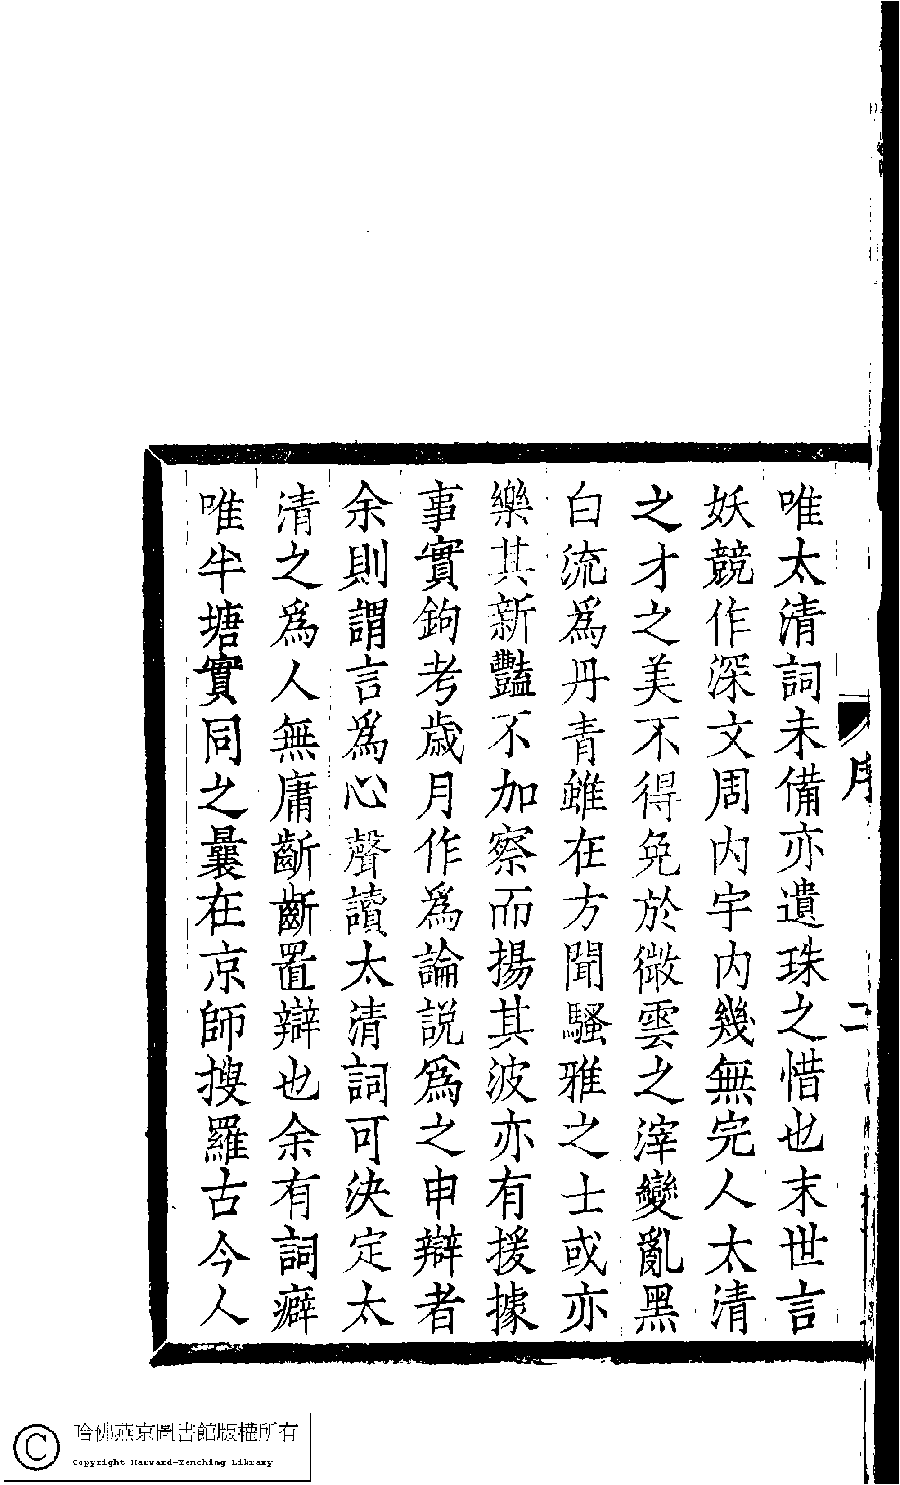 唯太清詞未備亦遺珠之惜也末世言
妖競作深文周内宇内幾無完人太清
之才之美不得免於微雲之滓變亂黑
白流爲丹青雖在方聞騷雅之士或亦
樂其新豔不加察而揚其波亦有援據
事實鉤考歲月作爲論説爲之申辯者
余則謂言爲心聲讀太清詞可決定太
清之爲人無庸齗齗置辯也余有詞癖
唯半塘實同之曩在京師搜羅古今人
序
二
哈佛燕京圖書館版權所有
Copyright Harvard-Yenching Library